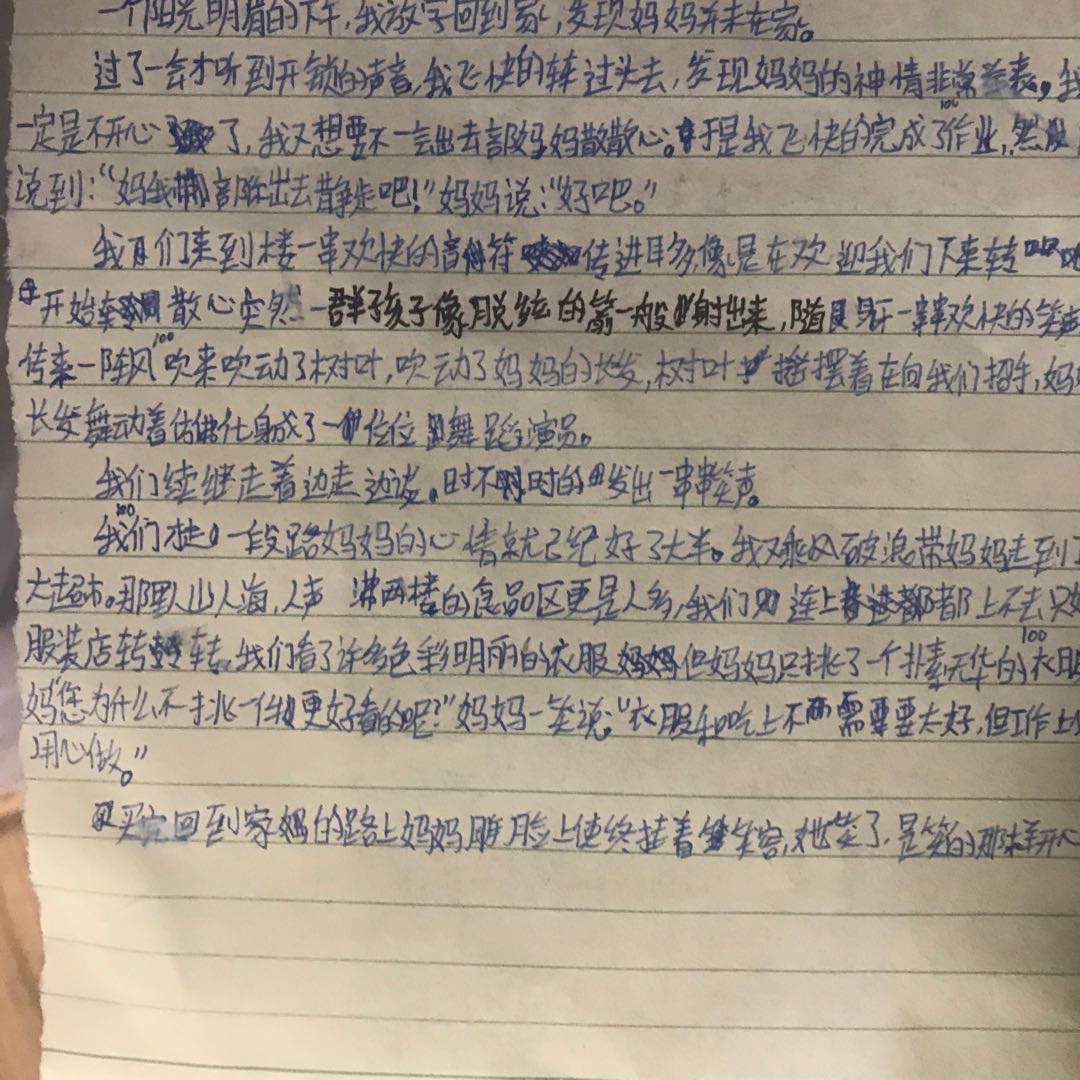 一个阳光明眉的下午,我放学回到家,发现妈妈并未在家。
过了一会才听到开锁的声音,我飞快的转过头去,发现妈妈的神情非常 我
一定是不开心 了,我又想要不一会出去 妈妈散散心。于是我飞快的完成了作业,然
说到:“妈我 出去 走吧!”妈妈说:“好吧。”
我们来到楼一串欢快的音符 传进耳 像是在欢迎我们下来转
开始 散心突然一群孩子像脱弦的箭一般射出来,随 一串欢快的笑声
传来一阵风吹来吹动了树叶,吹动了妈妈的长发,树叶 摇摆着在向我们招手,妈
长发舞动着 成了一位位舞蹈演员。
我们续继走着边走边谈。时不时的发出一串串笑声。
100
我们 一段路妈妈的心情就已经好了大半。我又乘风破浪带妈妈走到了
大超市。那里人山人海,人声沸 楼的食品区更是人多,我们 连上 都上不去只
服装店转 转,我们看了许多色彩明丽的衣服 但妈妈只挑了一个扑素无华的衣服
妈您为什么不挑一件更好看的呢?”妈妈一笑说:“衣服和吃上不需要太好,但工作上
用心做。”
买完回到家 的路上妈妈 脸上使终挂着 笑容,她笑了,是笑的那样开心